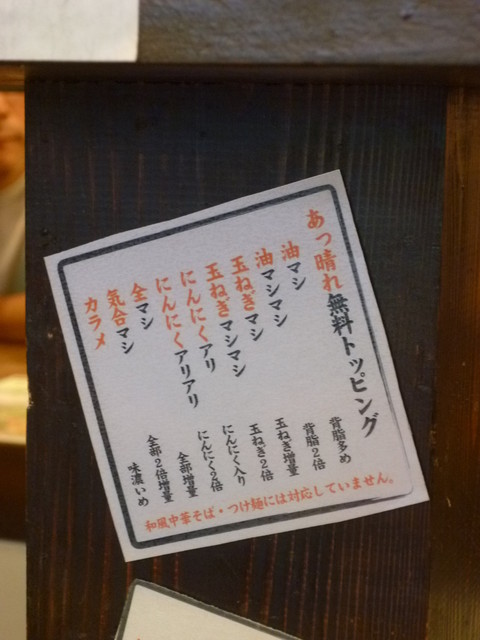 あっ晴れ無料トッピング
油マシ 背脂多め
油マシマシ 背脂2倍
玉ねぎマシ 玉ねぎ増量
玉ねぎマシマシ 玉ねぎ2倍
にんにくアリ にんにく入り
にんにくアリアリ にんにく2倍
全マシ 全部増量
気合マシ 全部2倍増量
カラメ 味濃いめ
和風中華そば・つけ麺には対応していません。